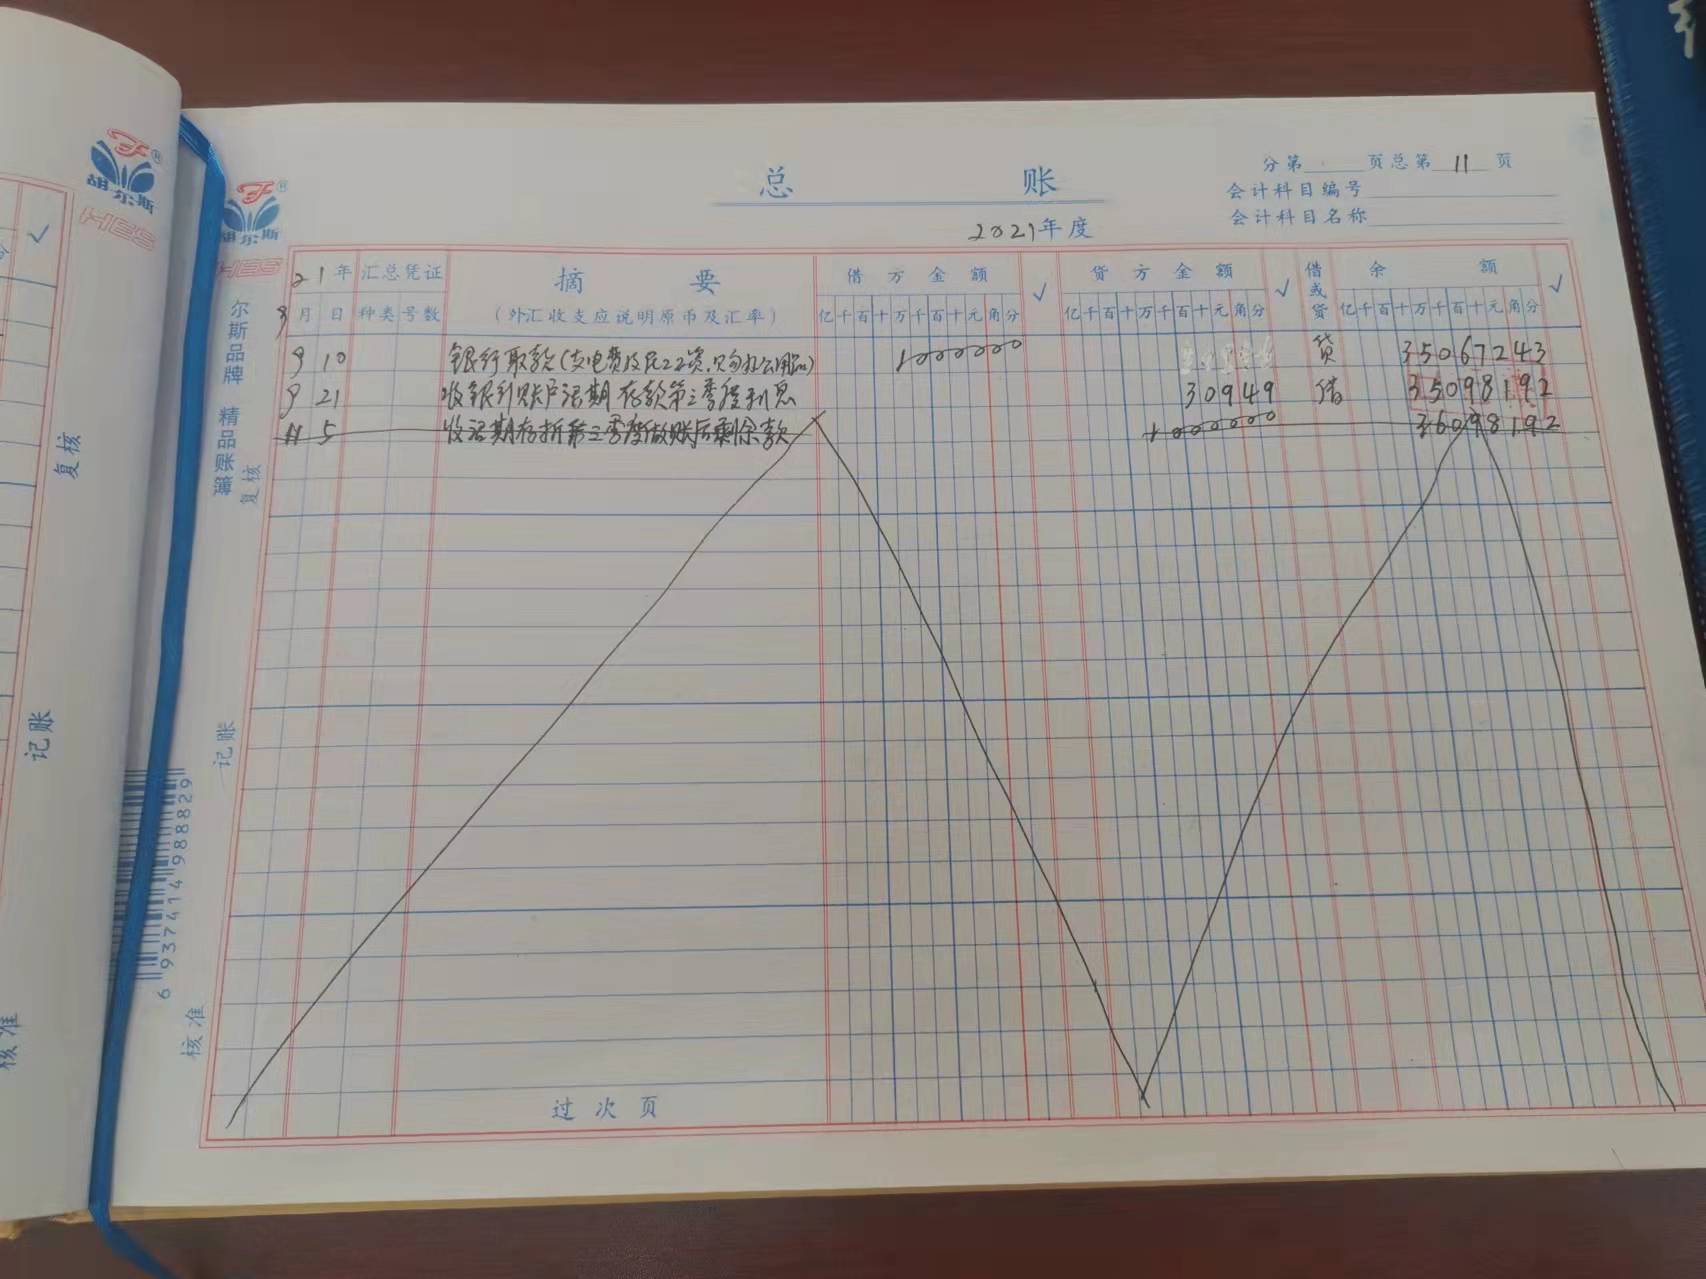 胡尔斯
HES
复核
记账
核准
胡尔斯
HES
尔斯品牌 精品
复核
记账
核准
6 937414 988829
总 账
2021年度
分第 页总第 11 页
会计科目编号
会计科目名称
21年 汇总凭证 摘 要 借方金额 √ 贷方金额 √ 借或贷 余 额 √
月 日 种类 号数 (外汇收支应说明原币及汇率) 亿千百十万千百十元角分 亿千百十万千百十元角分 亿千百十万千百十元角分
9 10 银行取款(支电费及民工工资,只勾办公用品) 1000000 贷 35067243
9 21 收银行账户活期存款第三季度利息 30949 借 35098192
11 5 收活期存折第三季度做账后剩余款 1000000 36098192
过次页